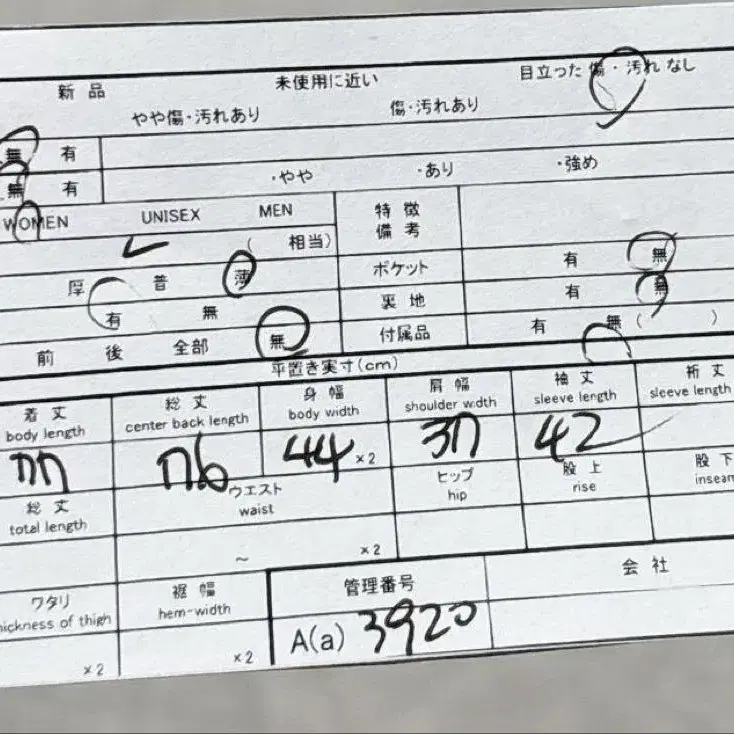 新品 未使用に近い 目立った傷・汚れなし
やや傷・汚れあり 傷・汚れあり
無 有
無 有 ・やや ・あり ・強め
WOMEN UNISEX MEN 特徴
備考
( 相当)
厚 普 薄 ポケット 有 無
有 無 裏地 有 無
前 後 全部 無 付属品 有 無 ( )
平置き実寸(cm)
着丈 総丈 身幅 肩幅 袖丈 裄丈
body length center back length body width shoulder width sleeve length sleeve length
77 76 44 ×2 37 42
総丈 ウエスト ヒップ 股上 股下
total length waist hip rise
~ ×2
ワタリ 裾幅 管理番号 会社
hickness of thigh hem-width
×2 ×2 A(a) 3920